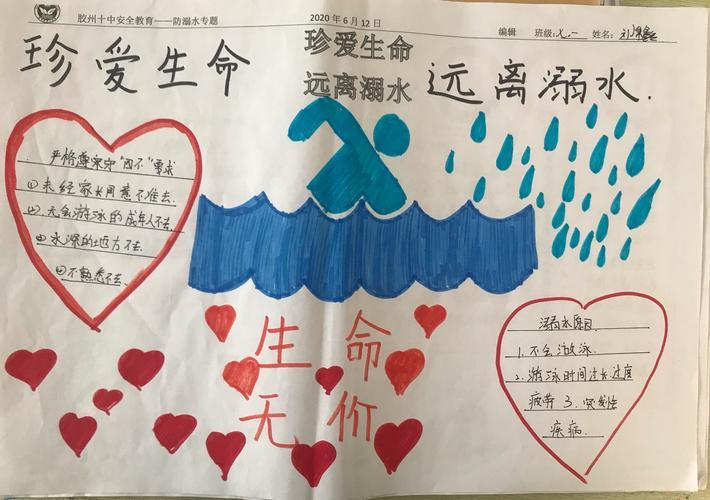 胶州十中安全教育——防溺水专题
2020年6月12日
编辑 班级:七.一 姓名:
珍爱生命
珍爱生命
远离溺水
远离溺水.
严格遵守"四不"要求
①未经家长同意不准去.
②.无会游泳的成年人不去
③水深的地方不去.
④不熟悉不去.
生命
无价
溺水原因
1.不会游泳.
2.游泳时间过长.过度
疲劳 3.突发性
疾病.